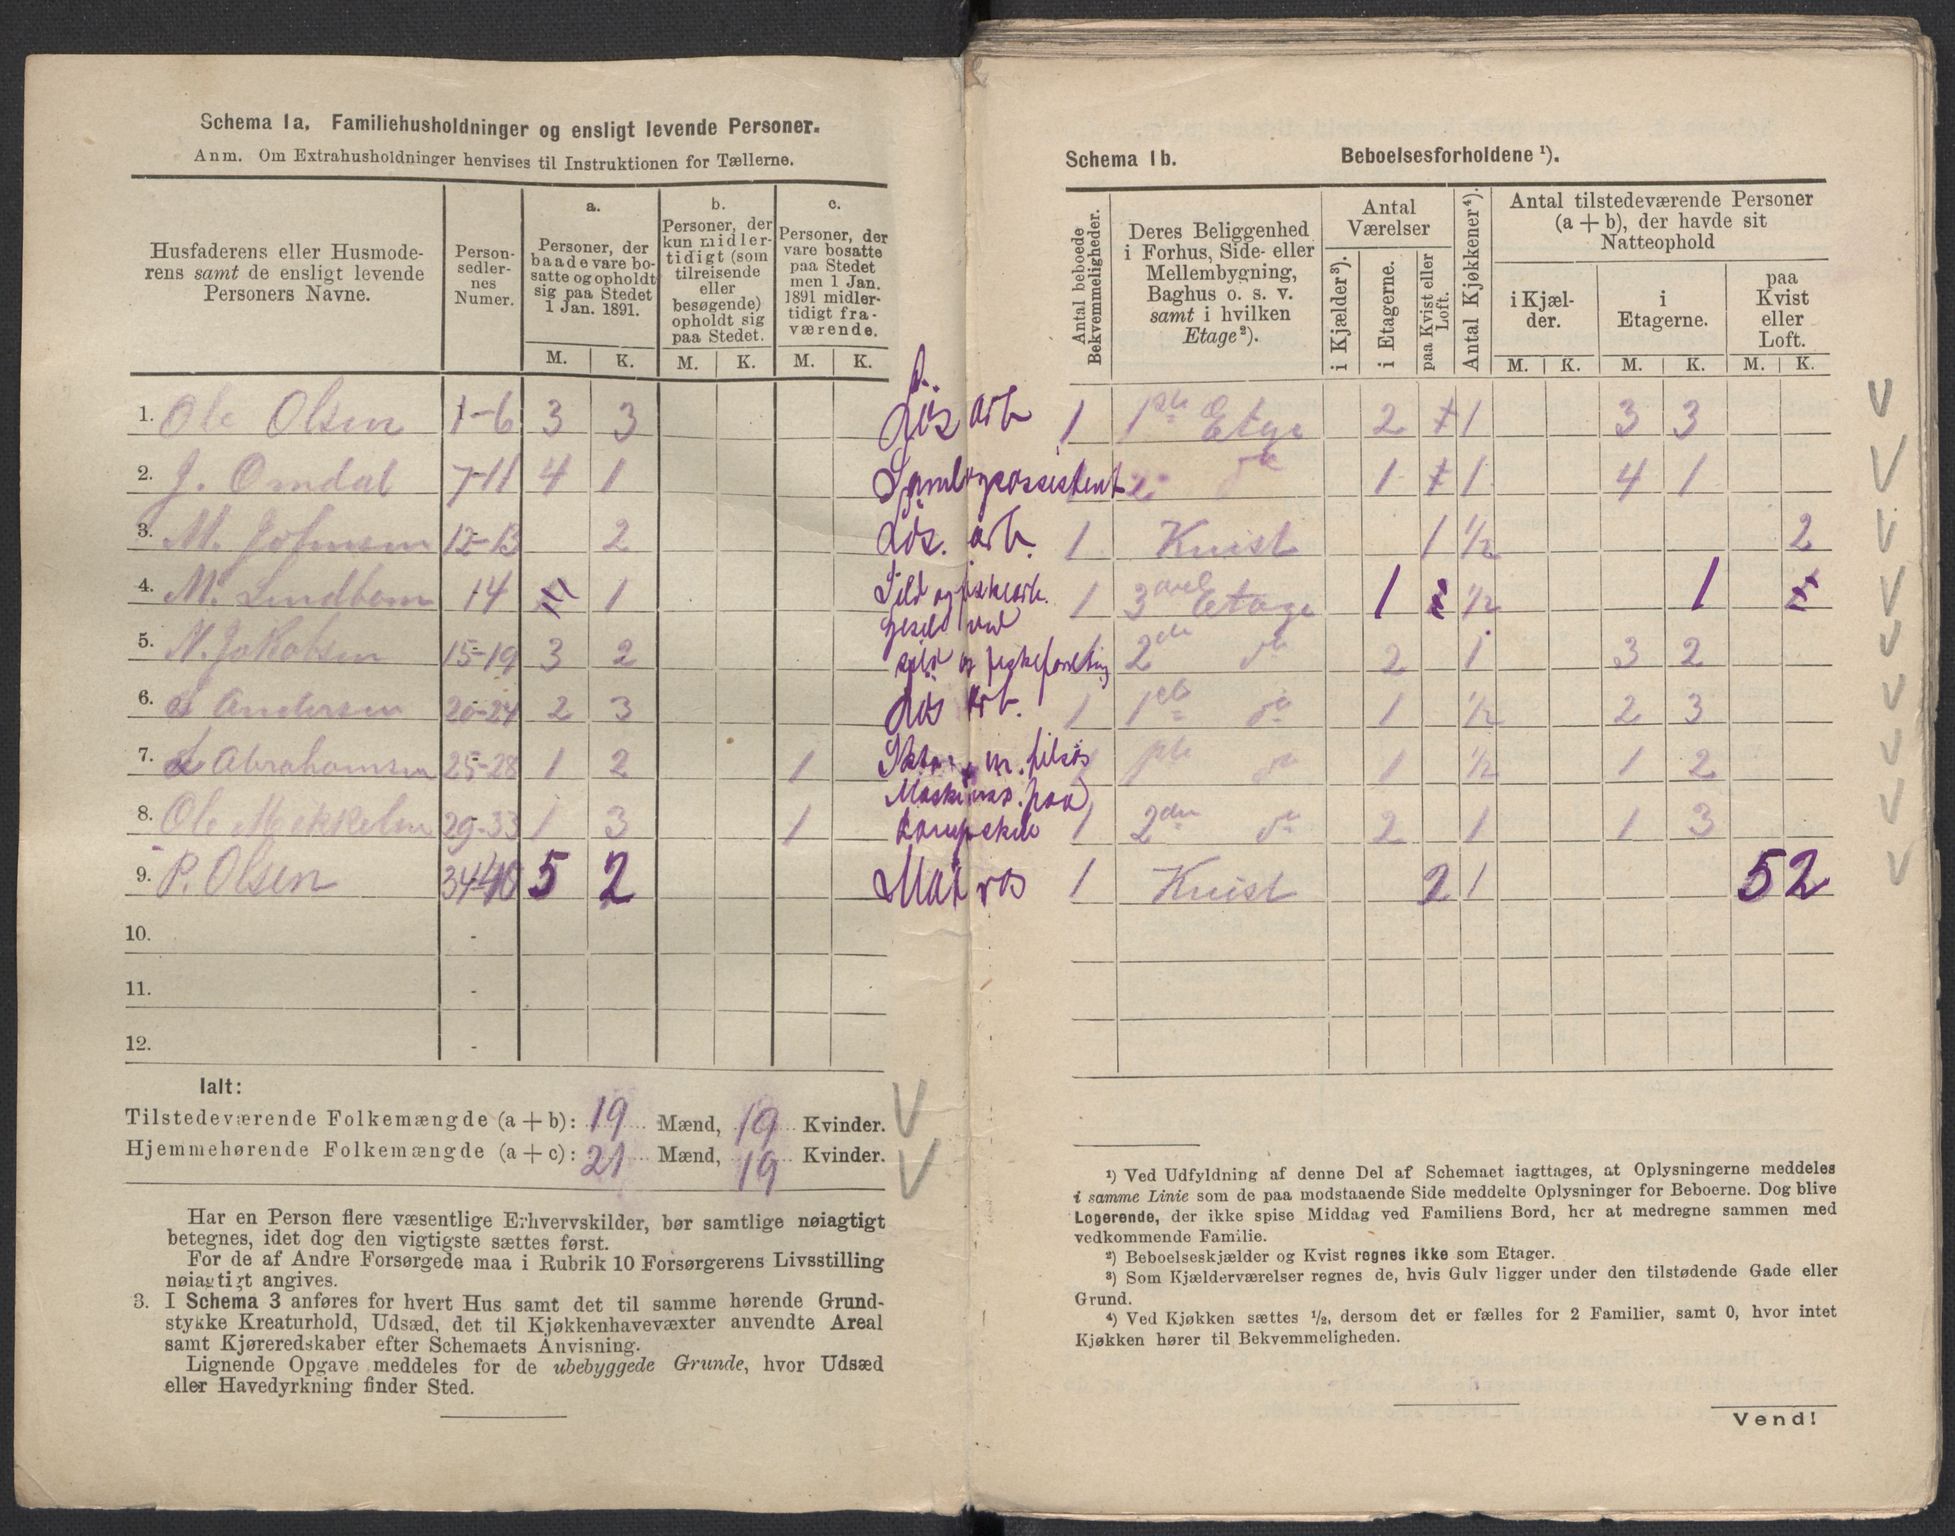 Schema 1a. Familiehusholdninger og ensligt levende Personer.
Anm. Om Extrahusholdninger henvises til Instruktionen for Tællerne.
Husfaderens eller Husmoderens samt de ensligt levende Personers Navne.
Personsedlernes Numer.
a. Personer, der baade vare bosatte og opholdt sig paa Stedet 1 Jan. 1891.
b. Personer, der kun midlertidigt (som tilreisende eller besøgende) opholdt sig paa Stedet.
c. Personer, der vare bosatte paa Stedet men 1 Jan. 1891 midlertidigt fraværende.
M. K. M. K. M. K.
1. Ole Olsen 1-6 3 3
2. J. Omdal 7-11 4 1
3. M. Johnsen 12-13 2
4. M. Lindbom 14 1
5. N. Jakobsen 15-19 3 2
6. Andersen 20-24 2 3
7. Abrahamsen 25-28 1 2 1
8. Ole Mikkelsen 29-33 1 3 1
9. P. Olsen 34-40 5 2
10. -
11. -
12. -
Ialt:
Tilstedeværende Folkemængde (a + b): 19 Mænd, 19 Kvinder.
Hjemmehørende Folkemængde (a + c): 21 Mænd, 19 Kvinder.
Har en Person flere væsentlige Erhvervskilder, bør samtlige nøiagtigt
betegnes, idet dog den vigtigste sættes først.
For de af Andre Forsørgede maa i Rubrik 10 Forsørgerens Livsstilling
nøiagtigt angives.
3. I Schema 3 anføres for hvert Hus samt det til samme hørende Grund-
stykke Kreaturhold, Udsæd, det til Kjøkkenhavevæxter anvendte Areal
samt Kjøreredskaber efter Schemaets Anvisning.
Lignende Opgave meddeles for de ubebyggede Grunde, hvor Udsæd
eller Havedyrkning finder Sted.
Schema 1b. Beboelsesforholdene ¹).
Antal beboede Bekvemmeligheder.
Deres Beliggenhed i Forhus, Side- eller Mellembygning, Baghus o. s. v. samt i hvilken Etage²).
Antal Værelser
i Kjælder³).
i Etagerne.
paa Kvist eller Loft.
Antal Kjøkkener⁴).
Antal tilstedeværende Personer (a + b), der havde sit Natteophold
i Kjælder.
i Etagerne.
paa Kvist eller Loft.
M. K. M. K. M. K.
Løs arb 1 1ste Etage 2 1 3 3
1 1 4 1
Løs. arb. 1 Kvist 1 1/2 2
Sild og fiskearb. 1 3 Etage 1 1/2 1
2den do 2 1 3 2
Løs Arb. 1 1ste do 1 1/2 2 3
1ste do 1 1/2 1 2
1 2den do 2 1 1 3
Matros 1 Kvist 2 1 5 2
¹) Ved Udfyldning af denne Del af Schemaet iagttages, at Oplysningerne meddeles
i samme Linie som de paa modstaaende Side meddelte Oplysninger for Beboerne. Dog blive
Logerende, der ikke spise Middag ved Familiens Bord, her at medregne sammen med
vedkommende Familie.
²) Beboelseskjælder og Kvist regnes ikke som Etager.
³) Som Kjælderværelser regnes de, hvis Gulv ligger under den tilstødende Gade eller
Grund.
⁴) Ved Kjøkken sættes ½, dersom det er fælles for 2 Familier, samt 0, hvor intet
Kjøkken hører til Bekvemmeligheden.
Vend!